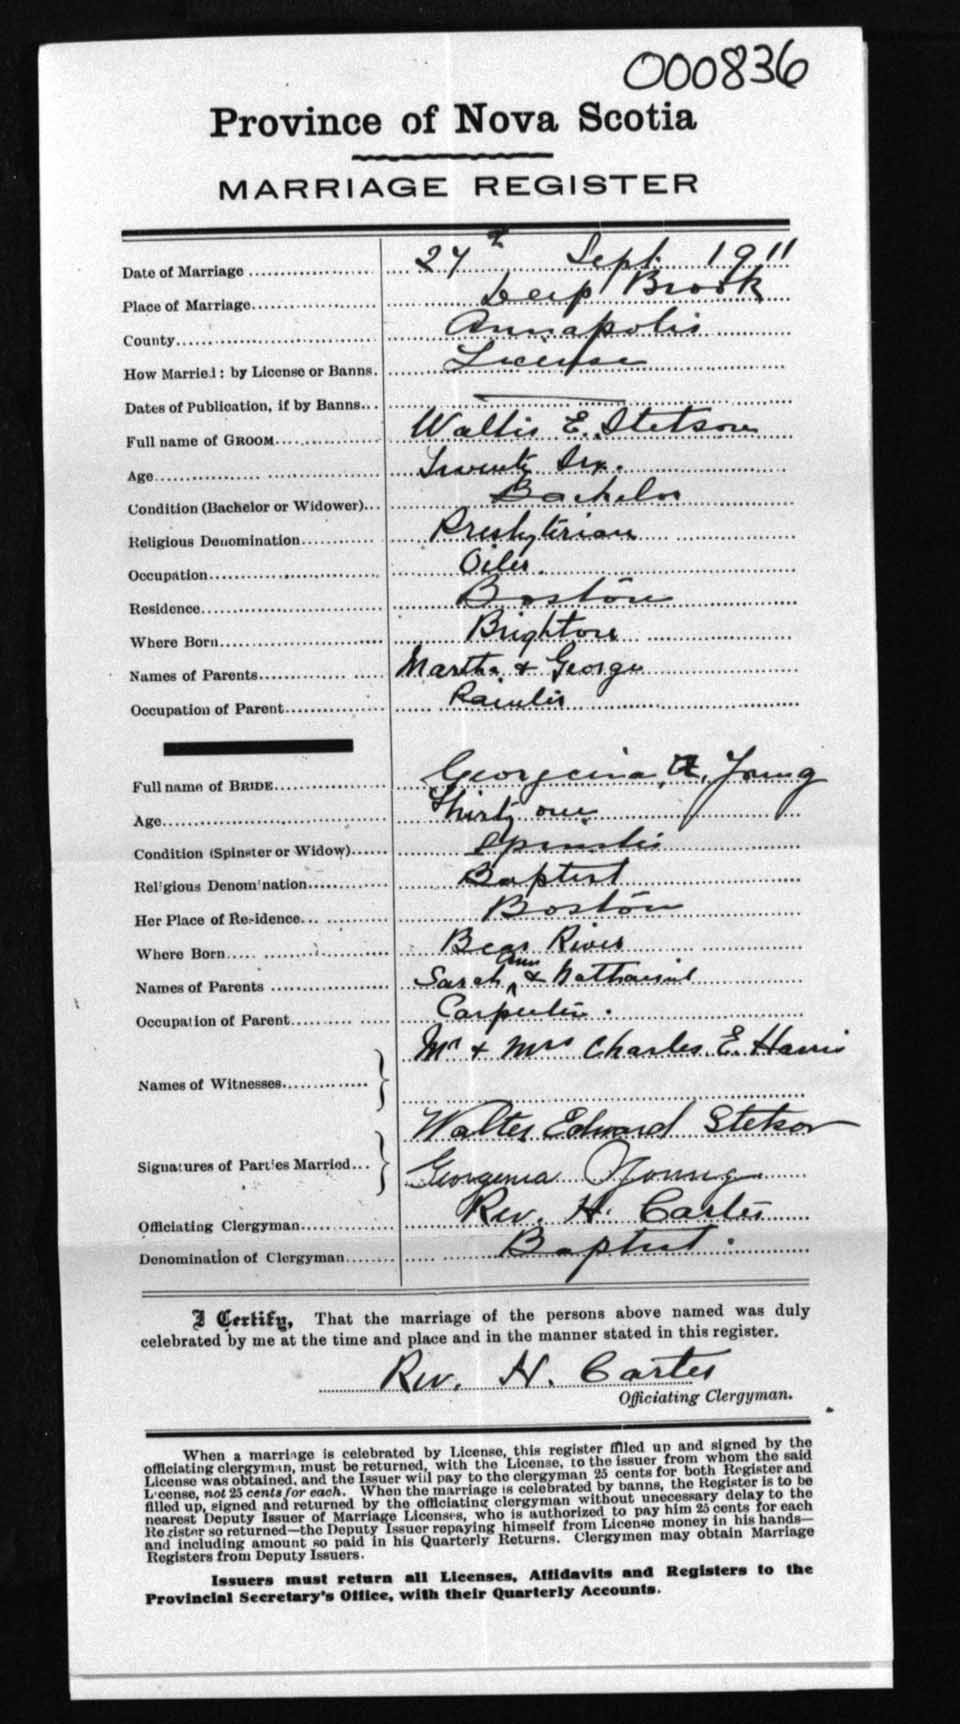 000836
Province of Nova Scotia
MARRIAGE REGISTER
Date of Marriage 27th Sept. 1911
Place of Marriage Deep Brook
County Annapolis
How Married: by License or Banns. License
Dates of Publication, if by Banns...
Full name of GROOM Walter E. Stetson
Age Twenty Six.
Condition (Bachelor or Widower)... Bachelor
Religious Denomination Presbyterian
Occupation Oiler.
Residence Boston
Where Born Brighton
Names of Parents Martha & George
Occupation of Parent Painter
Full name of BRIDE Georgenia A. Young
Age Thirty one
Condition (Spinster or Widow) Spinster
Religious Denomination Baptist
Her Place of Residence Boston
Where Born Bear River
Names of Parents Sarah Ann & Nathaniel
Occupation of Parent Carpenter.
Names of Witnesses Mr & Mrs Charles E. Harris
Walter Edward Stetson
Signatures of Parties Married... Georgenia Young
Officiating Clergyman Rev. H. Carter
Denomination of Clergyman Baptist.
I Certify, That the marriage of the persons above named was duly
celebrated by me at the time and place and in the manner stated in this register.
Rev. H. Carter
Officiating Clergyman.
When a marriage is celebrated by License, this register filled up and signed by the
officiating clergyman, must be returned, with the License, to the issuer from whom the said
License was obtained, and the Issuer will pay to the clergyman 25 cents for both Register and
License, not 25 cents for each. When the marriage is celebrated by banns, the Register is to be
filled up, signed and returned by the officiating clergyman without unnecessary delay to the
nearest Deputy Issuer of Marriage Licenses, who is authorized to pay him 25 cents for each
Register so returned—the Deputy Issuer repaying himself from License money in his hands—
and including amount so paid in his Quarterly Returns. Clergymen may obtain Marriage
Registers from Deputy Issuers.
Issuers must return all Licenses, Affidavits and Registers to the
Provincial Secretary's Office, with their Quarterly Accounts.